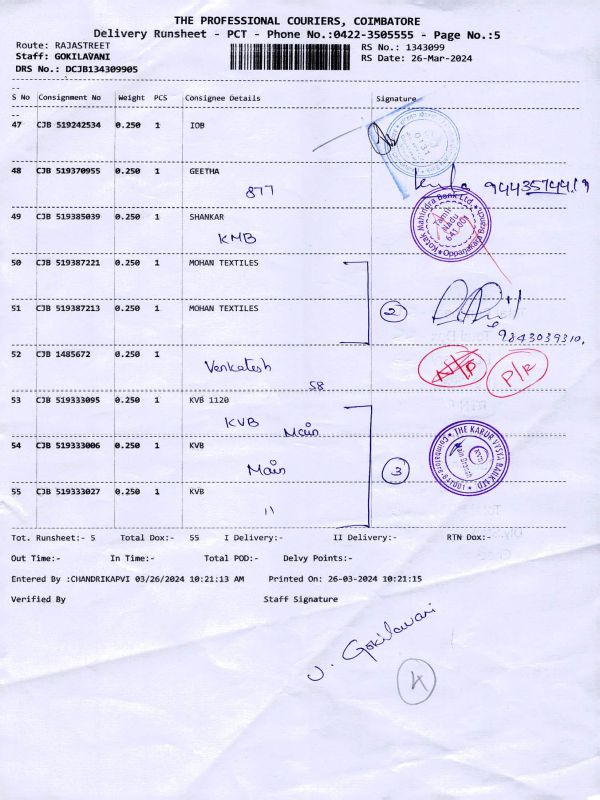 THE PROFESSIONAL COURIERS, COIMBATORE
Delivery Runsheet - PCT - Phone No.:0422-3505555 - Page No.:5
Route: RAJASTREET
RS No.: 1343099
Staff: GOKILAVANI
RS Date: 26-Mar-2024
DRS No.: DCJB134309905
S No Consignment No Weight PCS Consignee Details Signature
47 CJB 519242534 0.250 1 IOB
48 CJB 519370955 0.250 1 GEETHA
877
49 CJB 519385039 0.250 1 SHANKAR
KMB
Kotak Mahindra Bank Ltd. Oppanakara Branch
Tamil Nadu 641 001
50 CJB 519387221 0.250 1 MOHAN TEXTILES
51 CJB 519387213 0.250 1 MOHAN TEXTILES
2
9843039310.
52 CJB 1485672 0.250 1
Venkatesh
58
N/P P/R
53 CJB 519333095 0.250 1 KVB 1120
KVB Main
54 CJB 519333006 0.250 1 KVB
Main
3
THE KARUR VYSYA BANK LTD
Coimbatore-641001
55 CJB 519333027 0.250 1 KVB
"
Tot. Runsheet:- 5 Total Dox:- 55 I Delivery:- II Delivery:- RTN Dox:-
Out Time:- In Time:- Total POD:- Delvy Points:-
Entered By :CHANDRIKAPVI 03/26/2024 10:21:13 AM Printed On: 26-03-2024 10:21:15
Verified By Staff Signature
J. Gokilavani
4